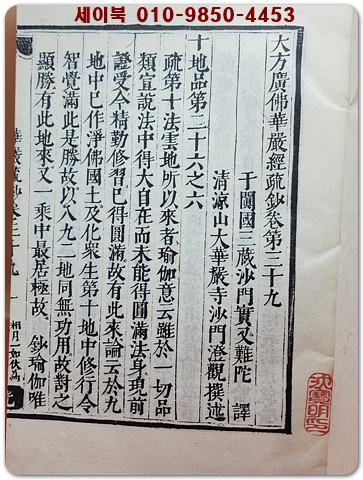 세이북 010-9850-4453
大方廣佛華嚴經疏鈔卷第三十九
于闐國三藏沙門實叉難陀 譯
清涼山大華嚴寺沙門澄觀撰述
十地品第二十六之六
疏第十法雲地所以來者瑜伽意云雖於一切品
類宣說法中得大自在而未能得圓滿法身現前
證受今精勤修習已得圓滿故有此來論云於九
地中已作淨佛國土及化衆生第十地中修行令
智覺滿此是勝故以八九二地同無功用故對之
顯勝有此地來又一乘中最居極故 鈔瑜伽唯
華嚴疏鈔卷三十九